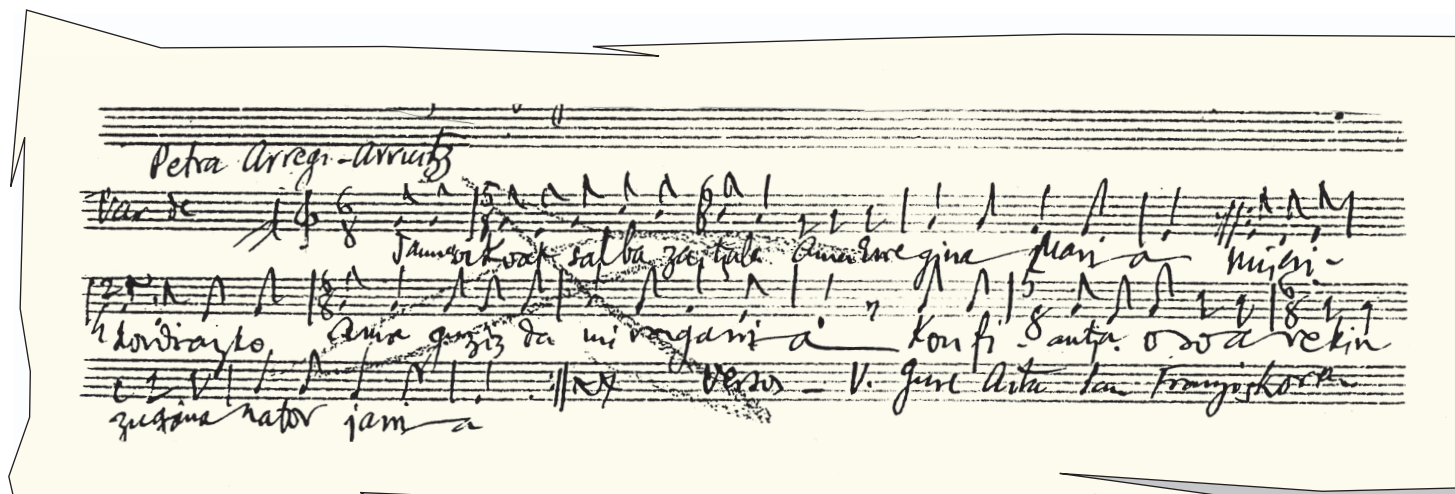 Petra Arregi-Arruitz
Var de
salba Ama Erregina Maria miseri-
kordiazko Ama guziz da miragarria Konfiantza osoarekin
zugana nator jarria Versos - V. Gure Aita San Franziskoren